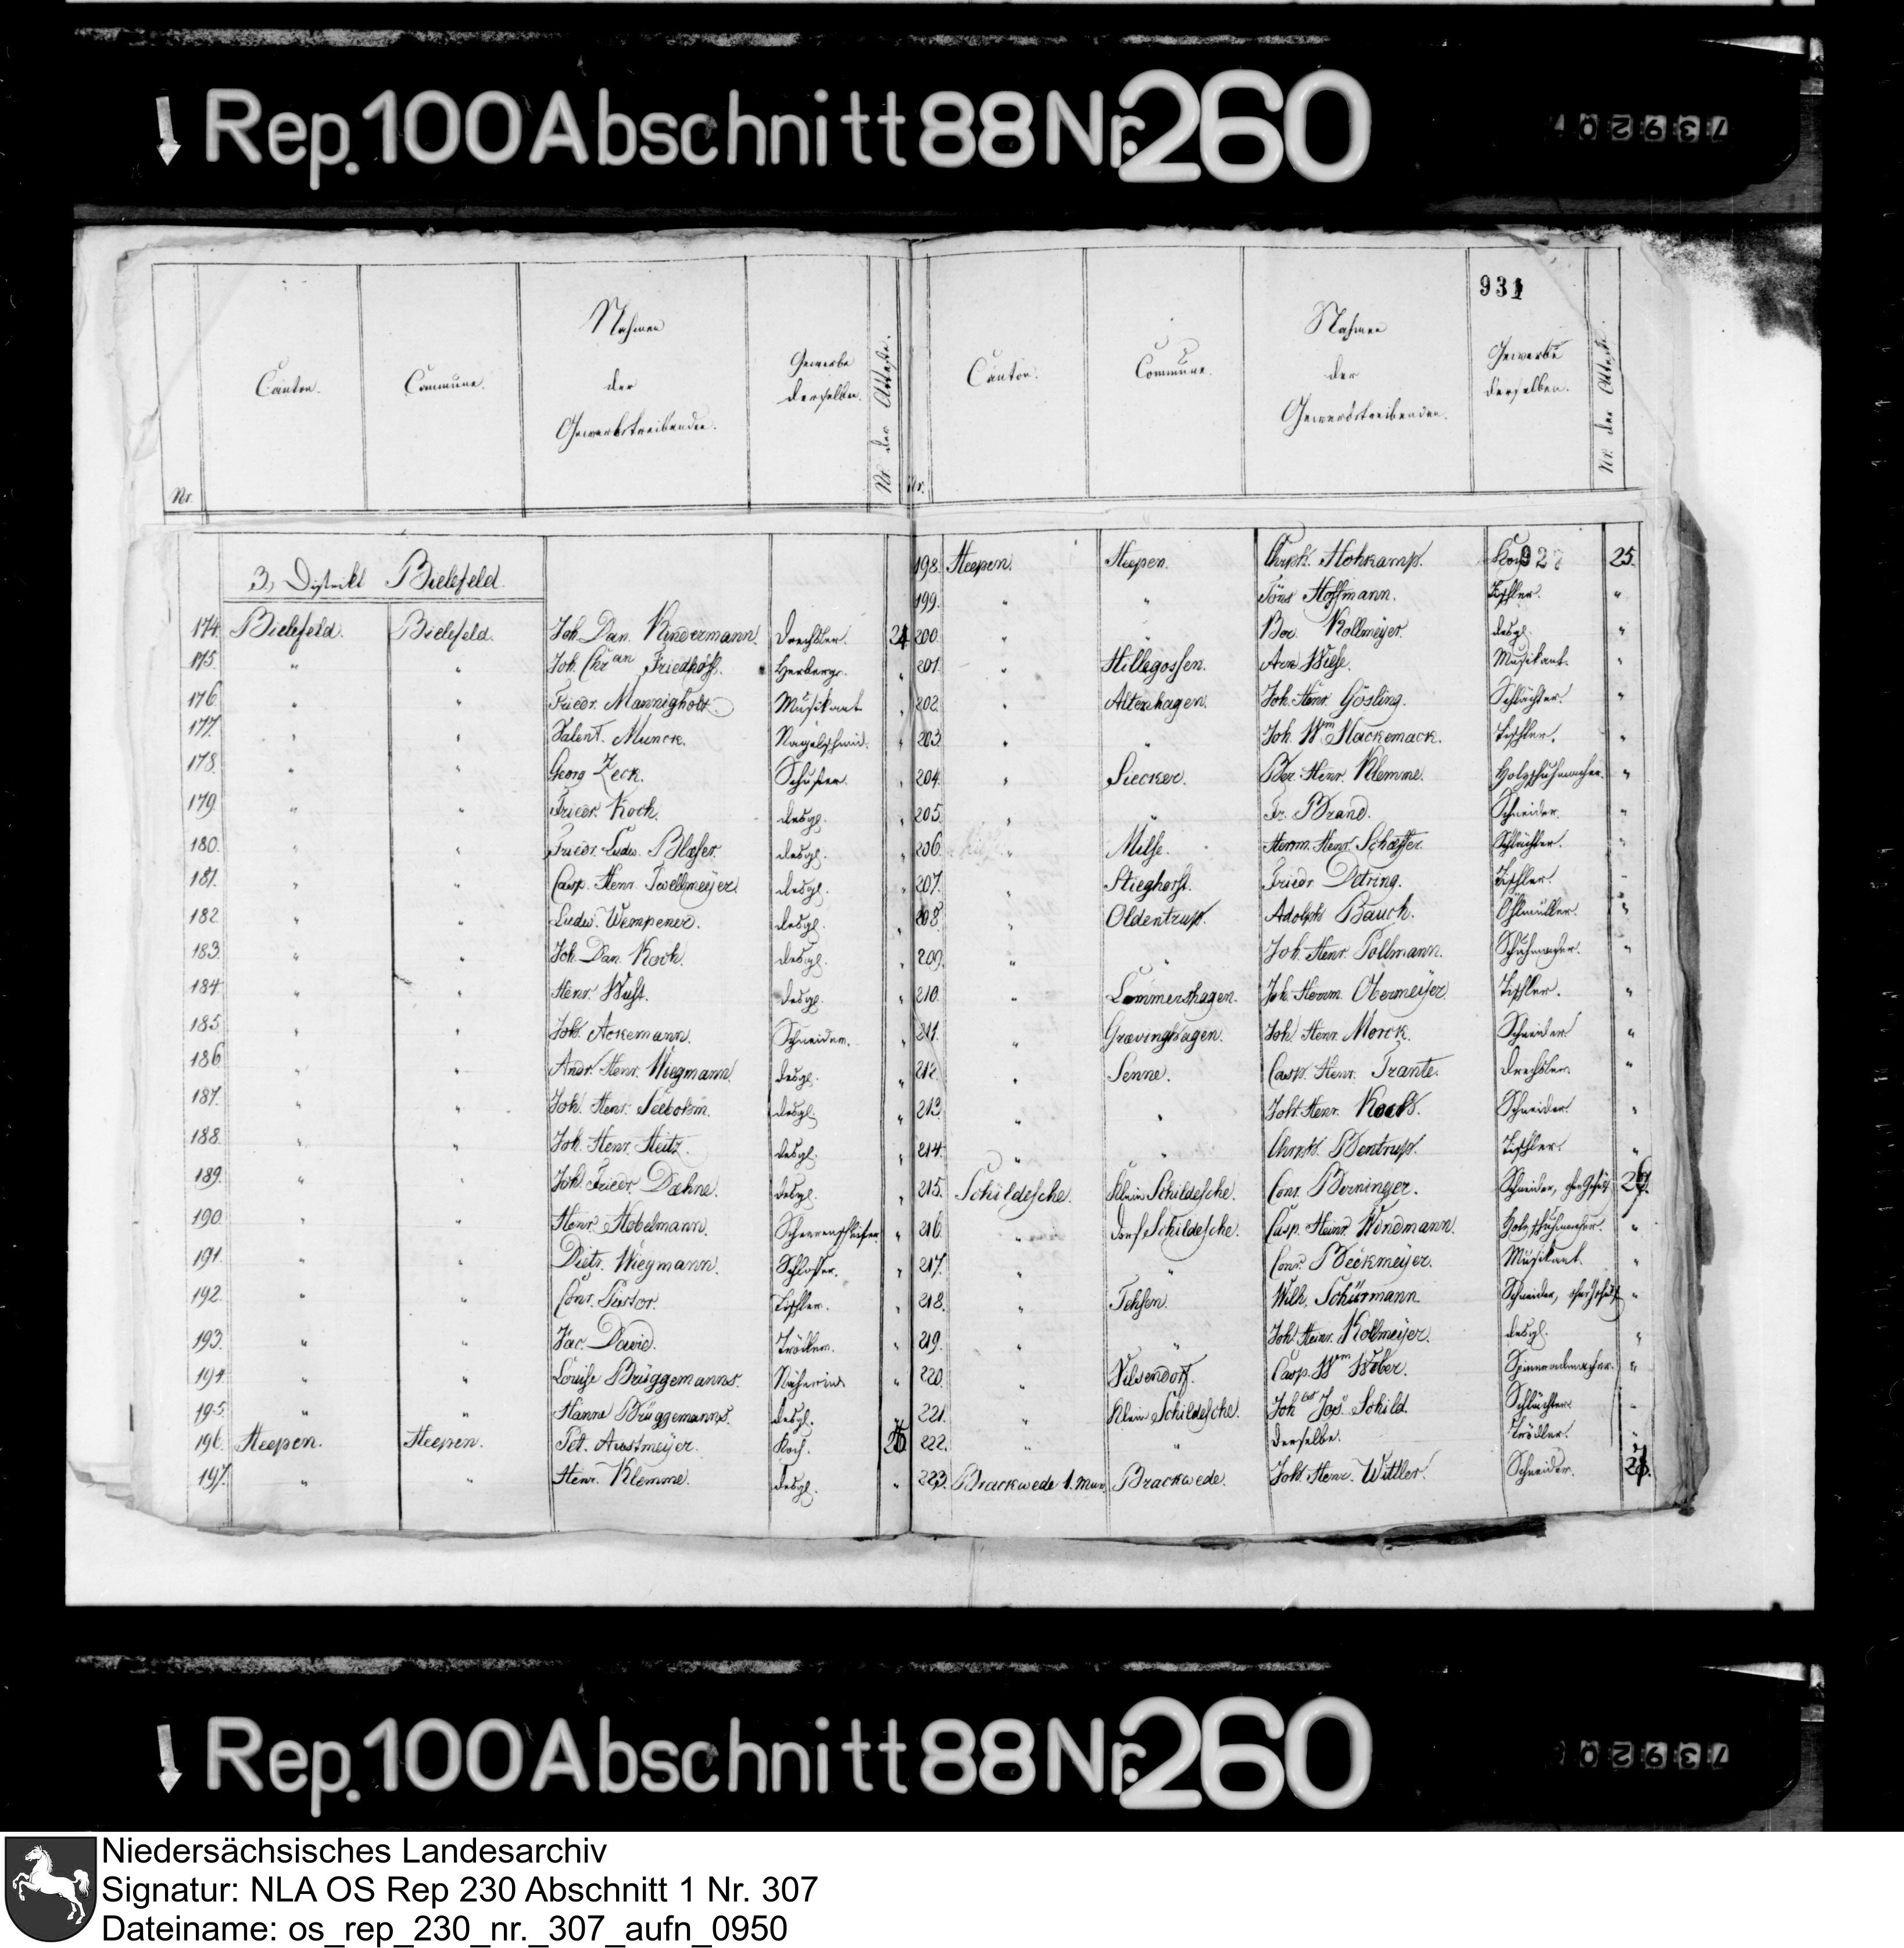 Rep. 100 Abschnitt 88 Nr. 260
739207
931
Nr. Canton. Commune. Nahmen der Gewerbetreibenden. Gewerbe derselben. Nr. der Atteste.
Nr. Canton. Commune. Nahmen der Gewerbetreibenden. Gewerbe derselben. Nr. der Atteste.
3., Distrikt Bielefeld.
174. Bielefeld. Bielefeld. Joh. Dan. Kindermann. Drechsler. 24
175. " " Joh. Chr an Friedhoff. Herberge. "
176. " " Friedr. Mannigholt Musikant "
177. " " Valent. Munck. Nagelschmid. "
178. " " Georg Zeck. Schuster. "
179. " " Friedr. Koch. desgl. "
180. " " Friedr. Ludw. Blaser. desgl. "
181. " " Casp. Henr. Twellmeyer. desgl. "
182. " " Ludw. Wempener. desgl. "
183. " " Joh. Dan. Koch. desgl. "
184. " " Henr. Wust. desgl. "
185. " " Joh. Ackemann. Schneider. "
186. " " Andr. Henr. Wiegmann. desgl. "
187. " " Joh. Henr. desgl. "
188. " " Joh. Henr. Heitz. desgl. "
189. " " Joh. Friedr. Daehne. desgl. "
190. " " Henr. Hebelmann. Scherenschleifer "
191. " " Dietr. Wiegmann. Schlosser. "
192. " " Conr. Tischler. "
193. " " Jac. David. Trödler. "
194. " " Louise Brüggemanns. Näherin "
195. " " Hanne Brüggemanns. desgl. "
196. Heepen. Heepen. Pet. Austmeyer. Koch. 25
197. " " Henr. Klemme. desgl. "
198. Heepen. Heepen. Christ. Hohkamp. Koch 927 25.
199. " " Töns Hoffmann. Tischler. "
200 " " Kollmeyer. desgl. "
201. " Hillegossen. Wiese. Musikant. "
202. " Altenhagen. Joh. Henr. Gösling. Schlächter. "
203. " " Joh. Wm Hackemack. Tischler. "
204. " Siecker. Henr. Klemme. Holzschuhmacher. "
205. " " Fr. Brand. Schneider. "
206. " Milse. Herm. Henr. Schäffer Schlächter. "
207. " Stieghorst. Friedr. Detring. Tischler. "
208. " Oldentrup. Adolph Bauch. Öhlmüller. "
209. " " Joh. Henr. Pollmann. Schuhmacher. "
210. " Lämmershagen. Joh. Herm. Obermeyer. Tischler. "
211. " Gravinghagen. Joh. Henr. Morck. Schneider. "
212. " Senne. Casp. Henr. Trante. Drechsler. "
213. " " Joh. Henr. Koch. Schneider. "
214. " " Christ. Bentrup. Tischler. "
215. Schildesche. Klein Schildesche. Conr. Berninger. Schneider, 26.
216. " Dorf Schildesche. Casp. Heinr. Windmann. Holzschuhmacher. "
217. " " Conr. Beckmeyer. Musikant. "
218. " Wilh. Schürmann Schneider, "
219. " " Joh. Heinr. Kollmeyer. desgl. "
220. " Vilsendorf. Casp. Wm Weber. Spinnradmacher. "
221. " Klein Schildesche. Joh Jos. Schild. Schlächter "
222. " " Derselbe. Trödler. "
223. Brackwede 1. Mun. Brackwede. Joh. Henr. Wittler. Schneider. 27.
Rep. 100 Abschnitt 88 Nr. 260
73920
Niedersächsisches Landesarchiv
Signatur: NLA OS Rep 230 Abschnitt 1 Nr. 307
Dateiname: os_rep_230_nr._307_aufn_0950